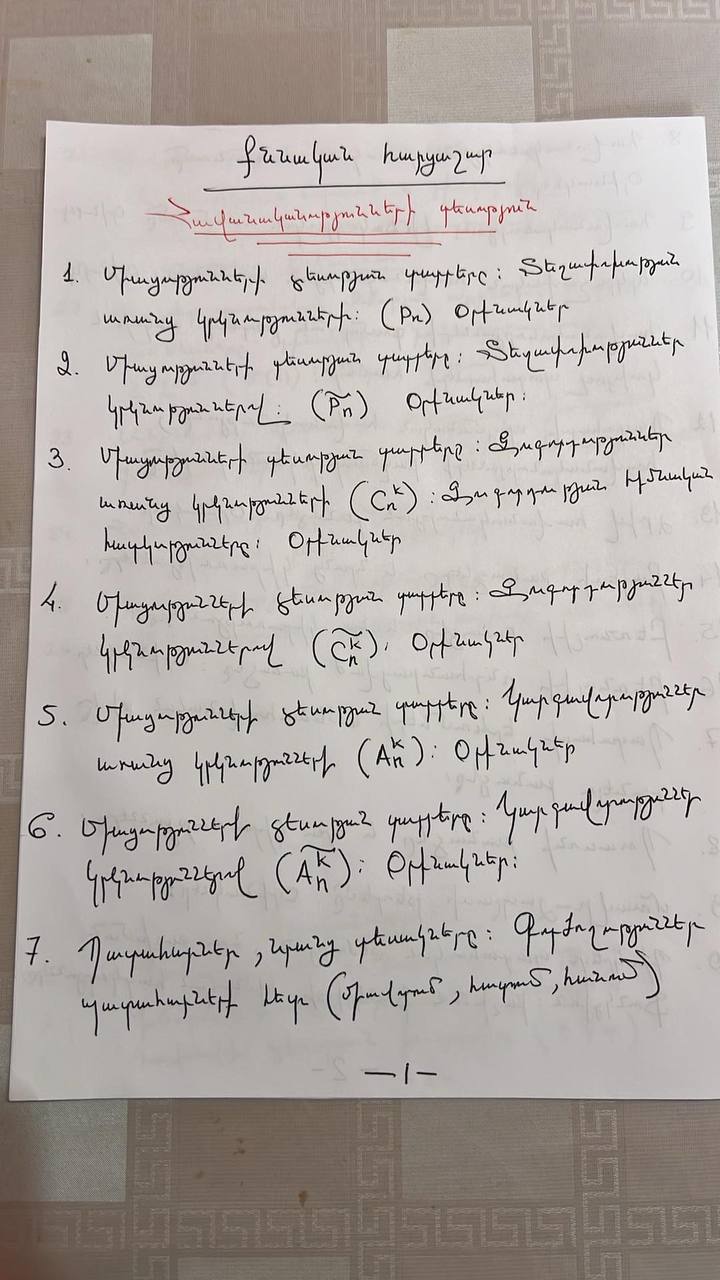 Քննական հարցաշար
Հավանականությունների տեսություն
1. Միացությունների տեսության տարրերը: Տեղափոխության
առանց կրկնությունների: (Pn) Օրինակներ
2. Միացությունների տեսության տարրերը: Տեղափոխություններ
կրկնություններով: (P̃n) Օրինակներ:
3. Միացությունների տեսության տարրերը: Զուգորդություններ
առանց կրկնությունների (Cₙᵏ): Զուգորդության հիմնական
հատկությունները: Օրինակներ
4. Միացությունների տեսության տարրերը: Զուգորդություններ
կրկնություններով (C̃ₙᵏ): Օրինակներ
5. Միացությունների տեսության տարրերը: Կարգավորություններ
առանց կրկնությունների (Aₙᵏ): Օրինակներ
6. Միացությունների տեսության տարրերը: Կարգավորություններ
կրկնություններով (Ãₙᵏ): Օրինակներ:
7. Պատահարներ, նրանց տեսակները: Գործողություններ
պատահարների հետ (միավորում, հատում, հանում)
—1—